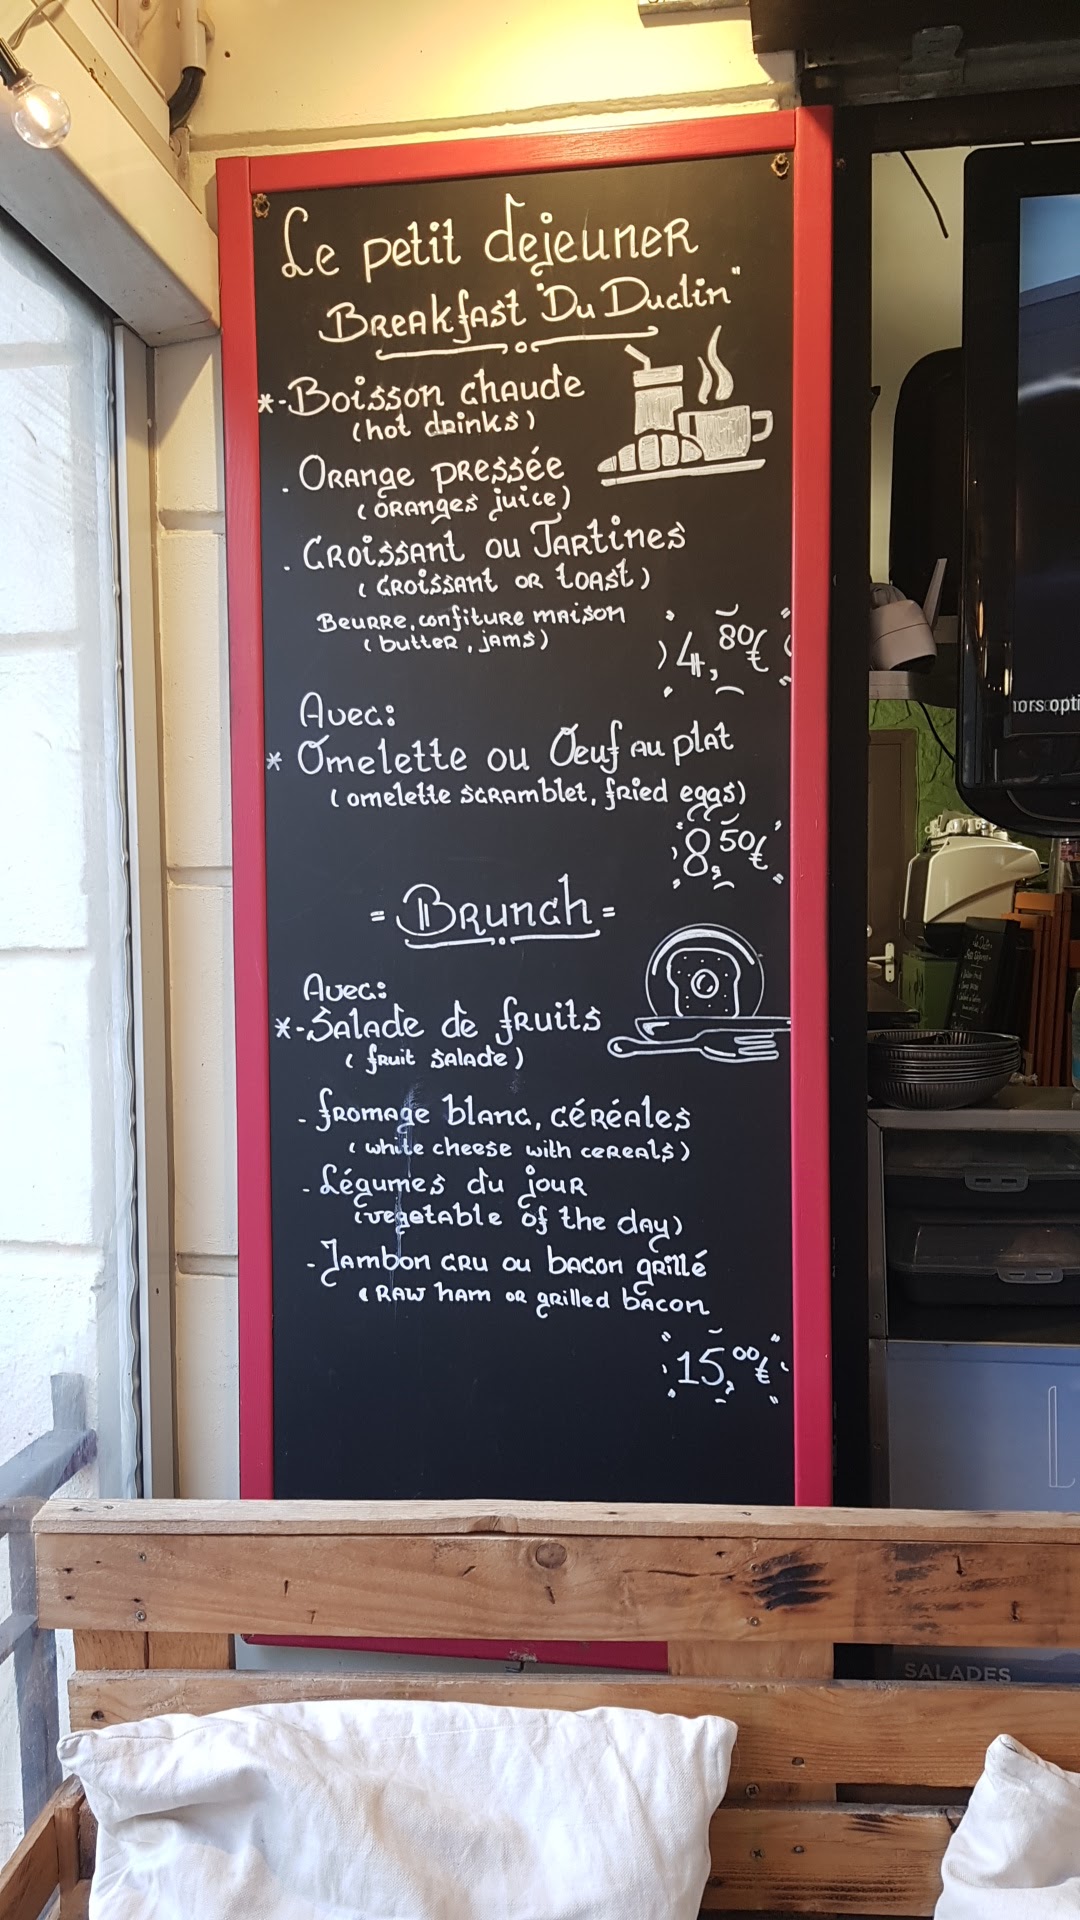 Le petit dejeuner
Breakfast "Du Duclin"
*-Boisson chaude
(hot drinks)
. Orange pressée
(oranges juice)
. Croissant ou Tartines
(croissant or toast)
Beurre, confiture maison
(butter, jams)
4,80€
Avec:
* Omelette ou Oeuf au plat
(omelette scramblet, fried eggs)
8,50€
= Brunch =
Avec:
*-Salade de fruits
(fruit salade)
- fromage blanc, céréales
(white cheese with cereals)
- Légumes du jour
(vegetable of the day)
- Jambon cru ou bacon grillé
(raw ham or grilled bacon
15,00€
SALADES